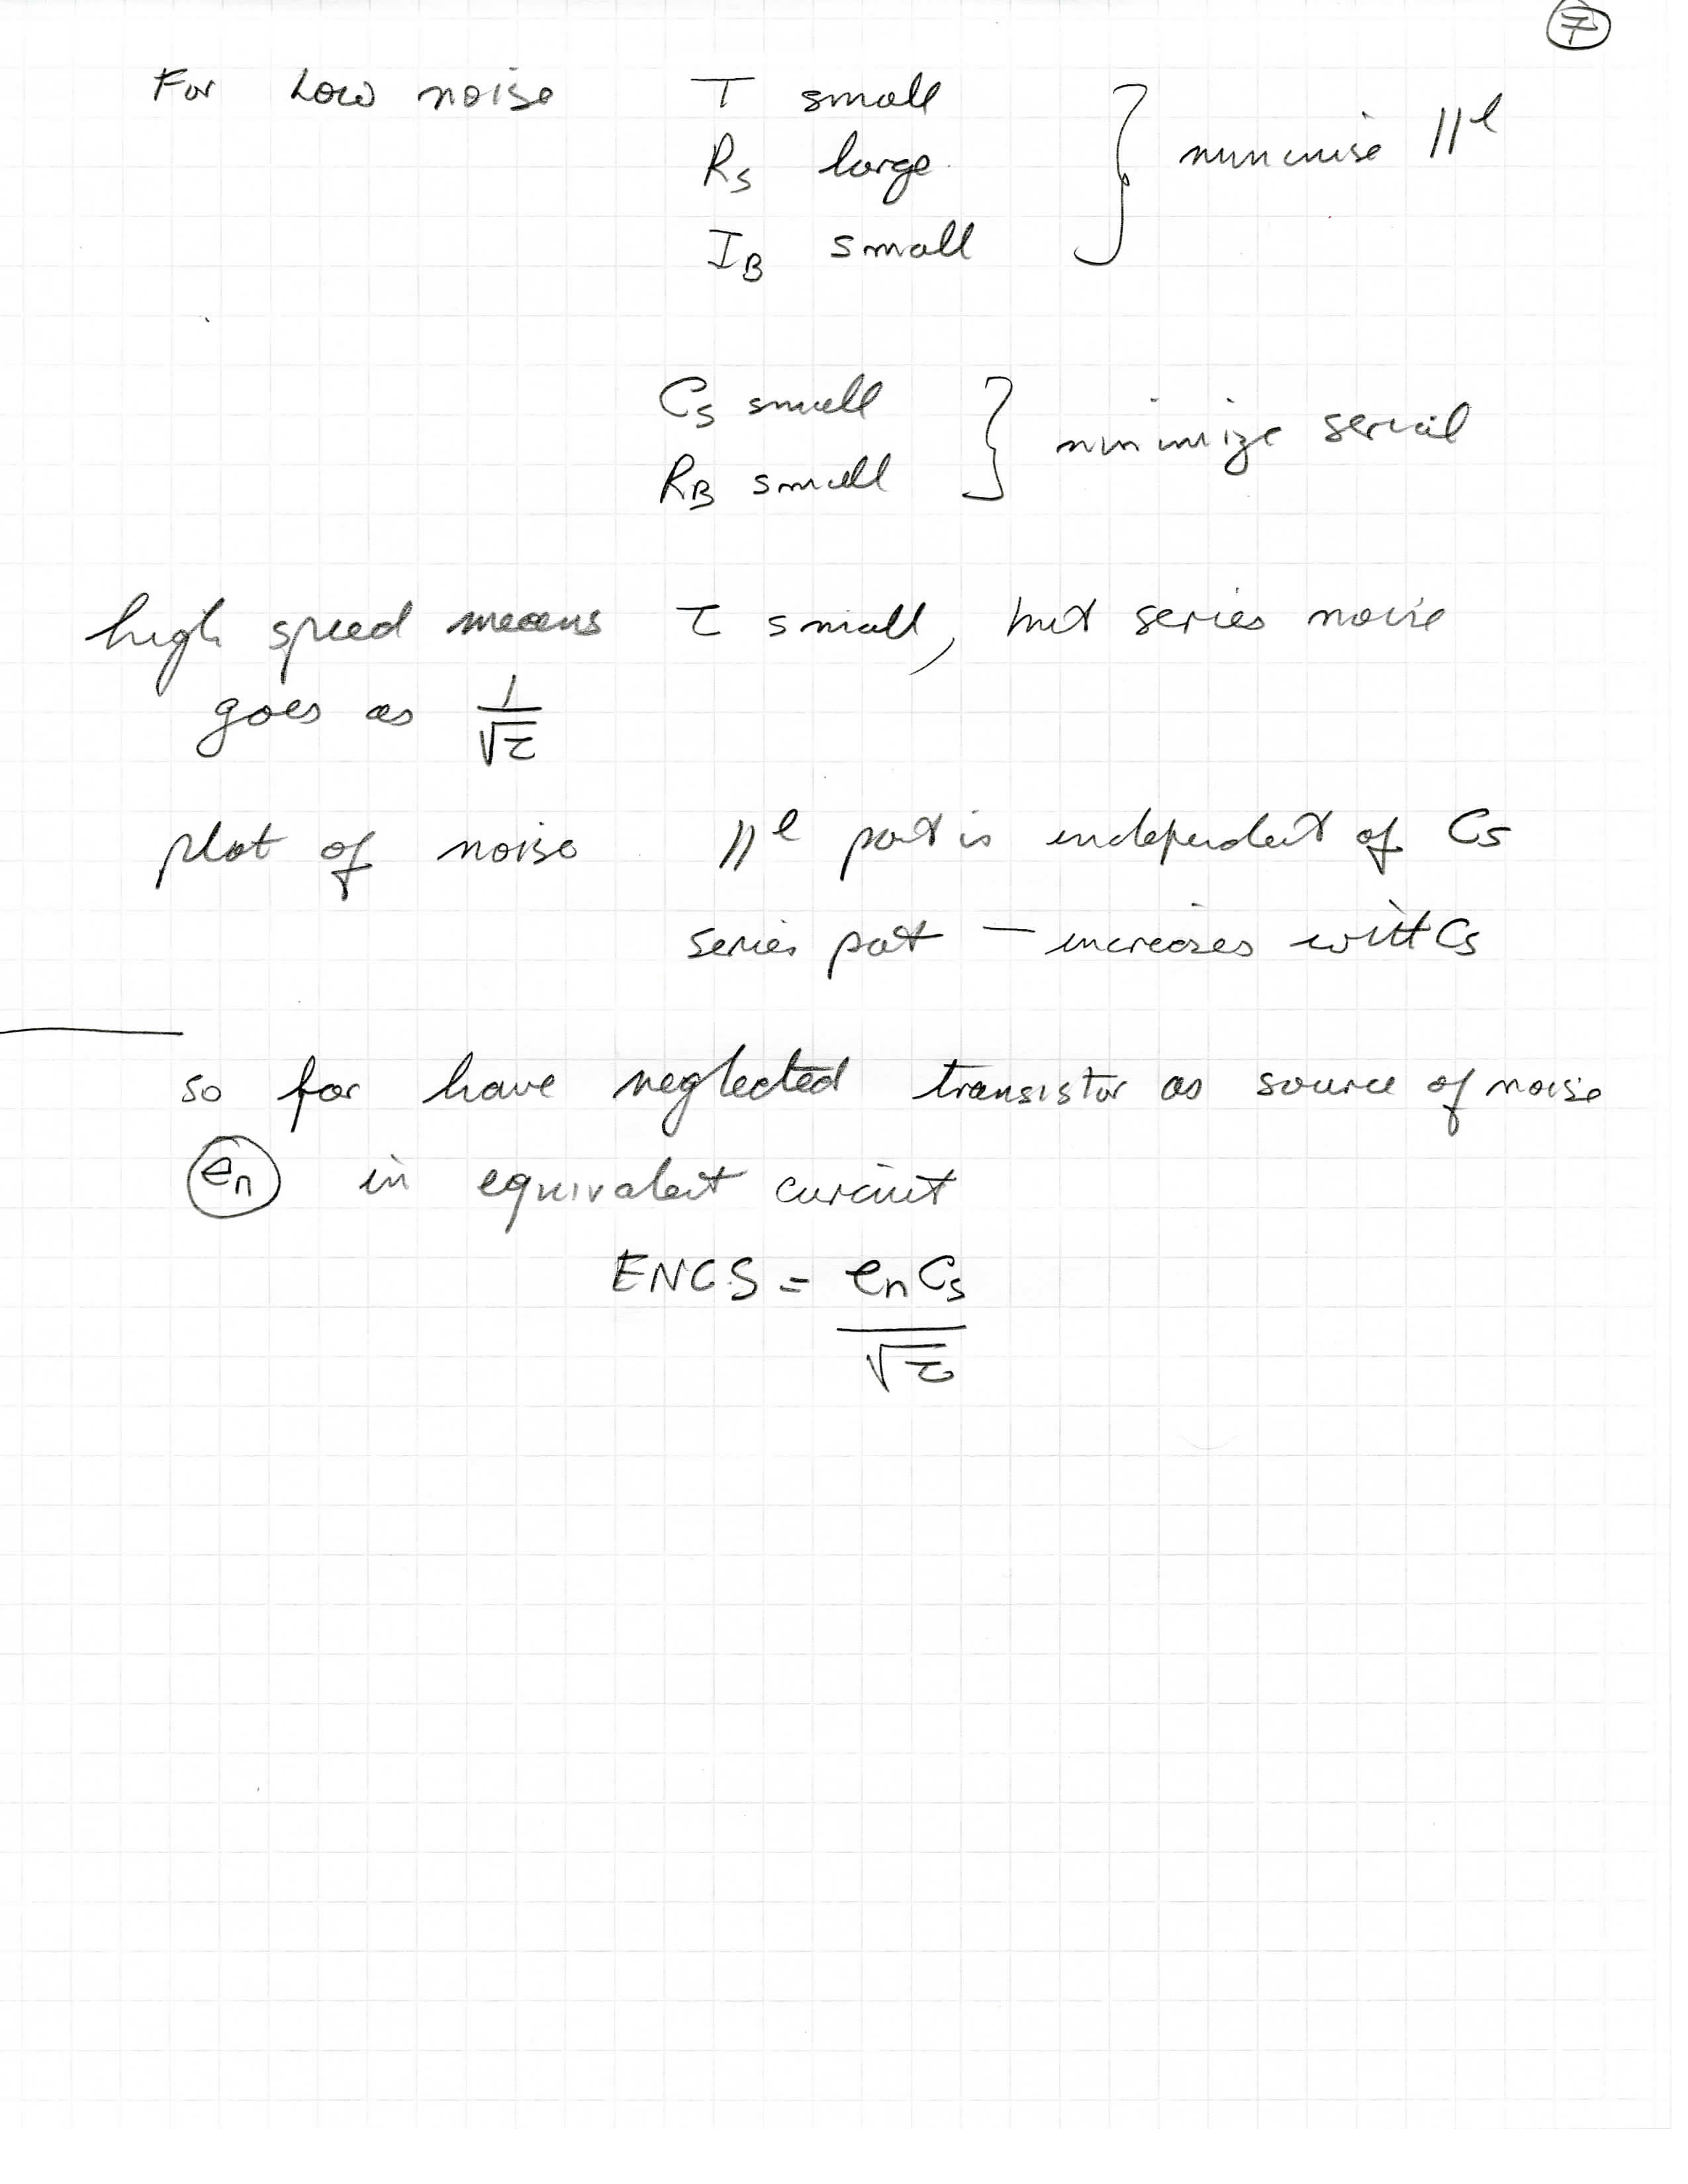 7
For Low noise T small
Rs large } minimise //el
IB small
Cs small } minimize serial
RB small
high speed means τ small, but series noise
goes as 1/√τ
plot of noise //el part is independent of Cs
series part — increases with Cs
so far have neglected transistor as source of noise
en in equivalent circuit
ENCS = en Cs
√τ